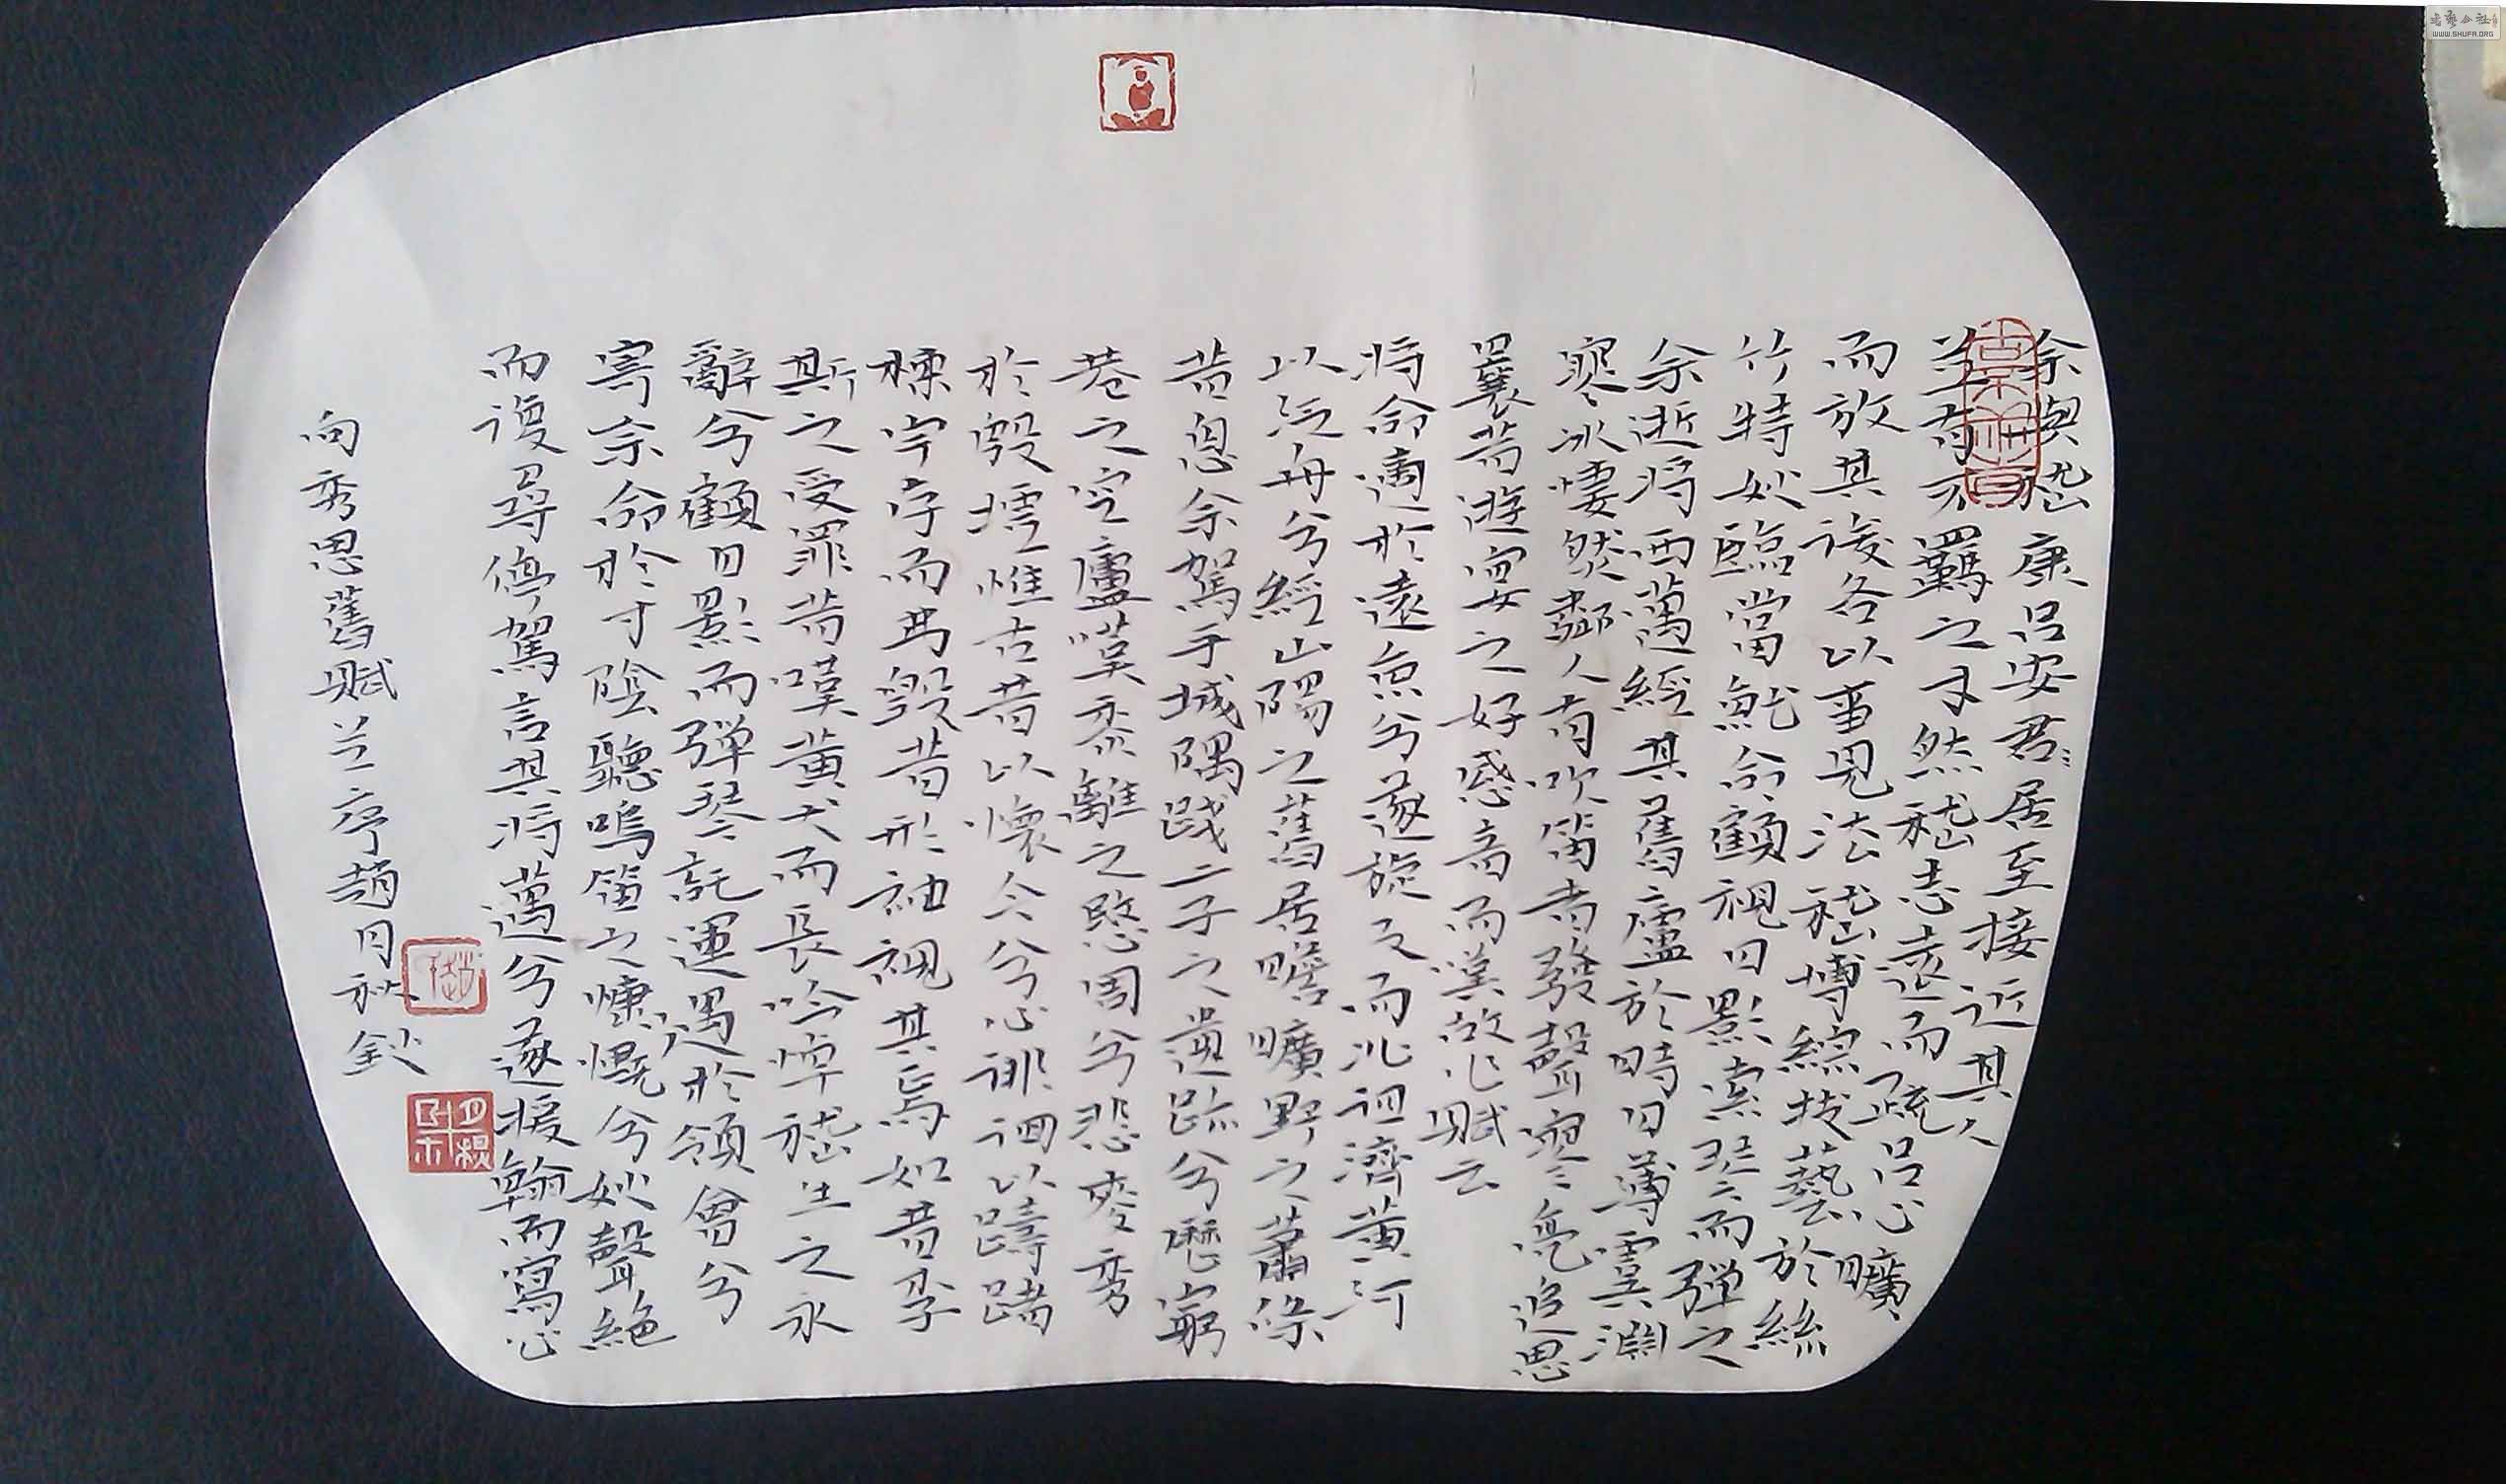 余與嵇康呂安君=居至接近其人
並有不羈之才然嵇志遠而疏呂心曠
而放其後各以事見法嵇博綜技藝於絲
竹特妙臨當就命顧視日影索琴而彈之
余逝將西邁經其舊廬於時日薄虞淵
寒冰悽然鄰人有吹笛者發聲寥亮追思
曩昔遊宴之好感音而嘆故作賦云
將命適於遠京兮遂旋反而北徂濟黃河
以泛舟兮經山陽之舊居瞻曠野之蕭條
昔息余駕乎城隅踐二子之遺跡兮歷窮
巷之空廬嘆黍離之愍周兮悲麥秀
於殷墟惟古昔以懷今兮心徘徊以躊躇
棟宇存而弗毀昔形神視其焉如昔李
斯之受罪昔嘆黃犬而長吟悼嵇生之永
辭兮顧日影而彈琴託運遇於領會兮
寄余命於寸陰聽鳴笛之慷慨兮妙聲絕
而復尋停駕言其將邁兮遂援翰而寫心
向秀思舊賦並序趙月秋鈔
書藝公社
WWW.SHUFA.ORG